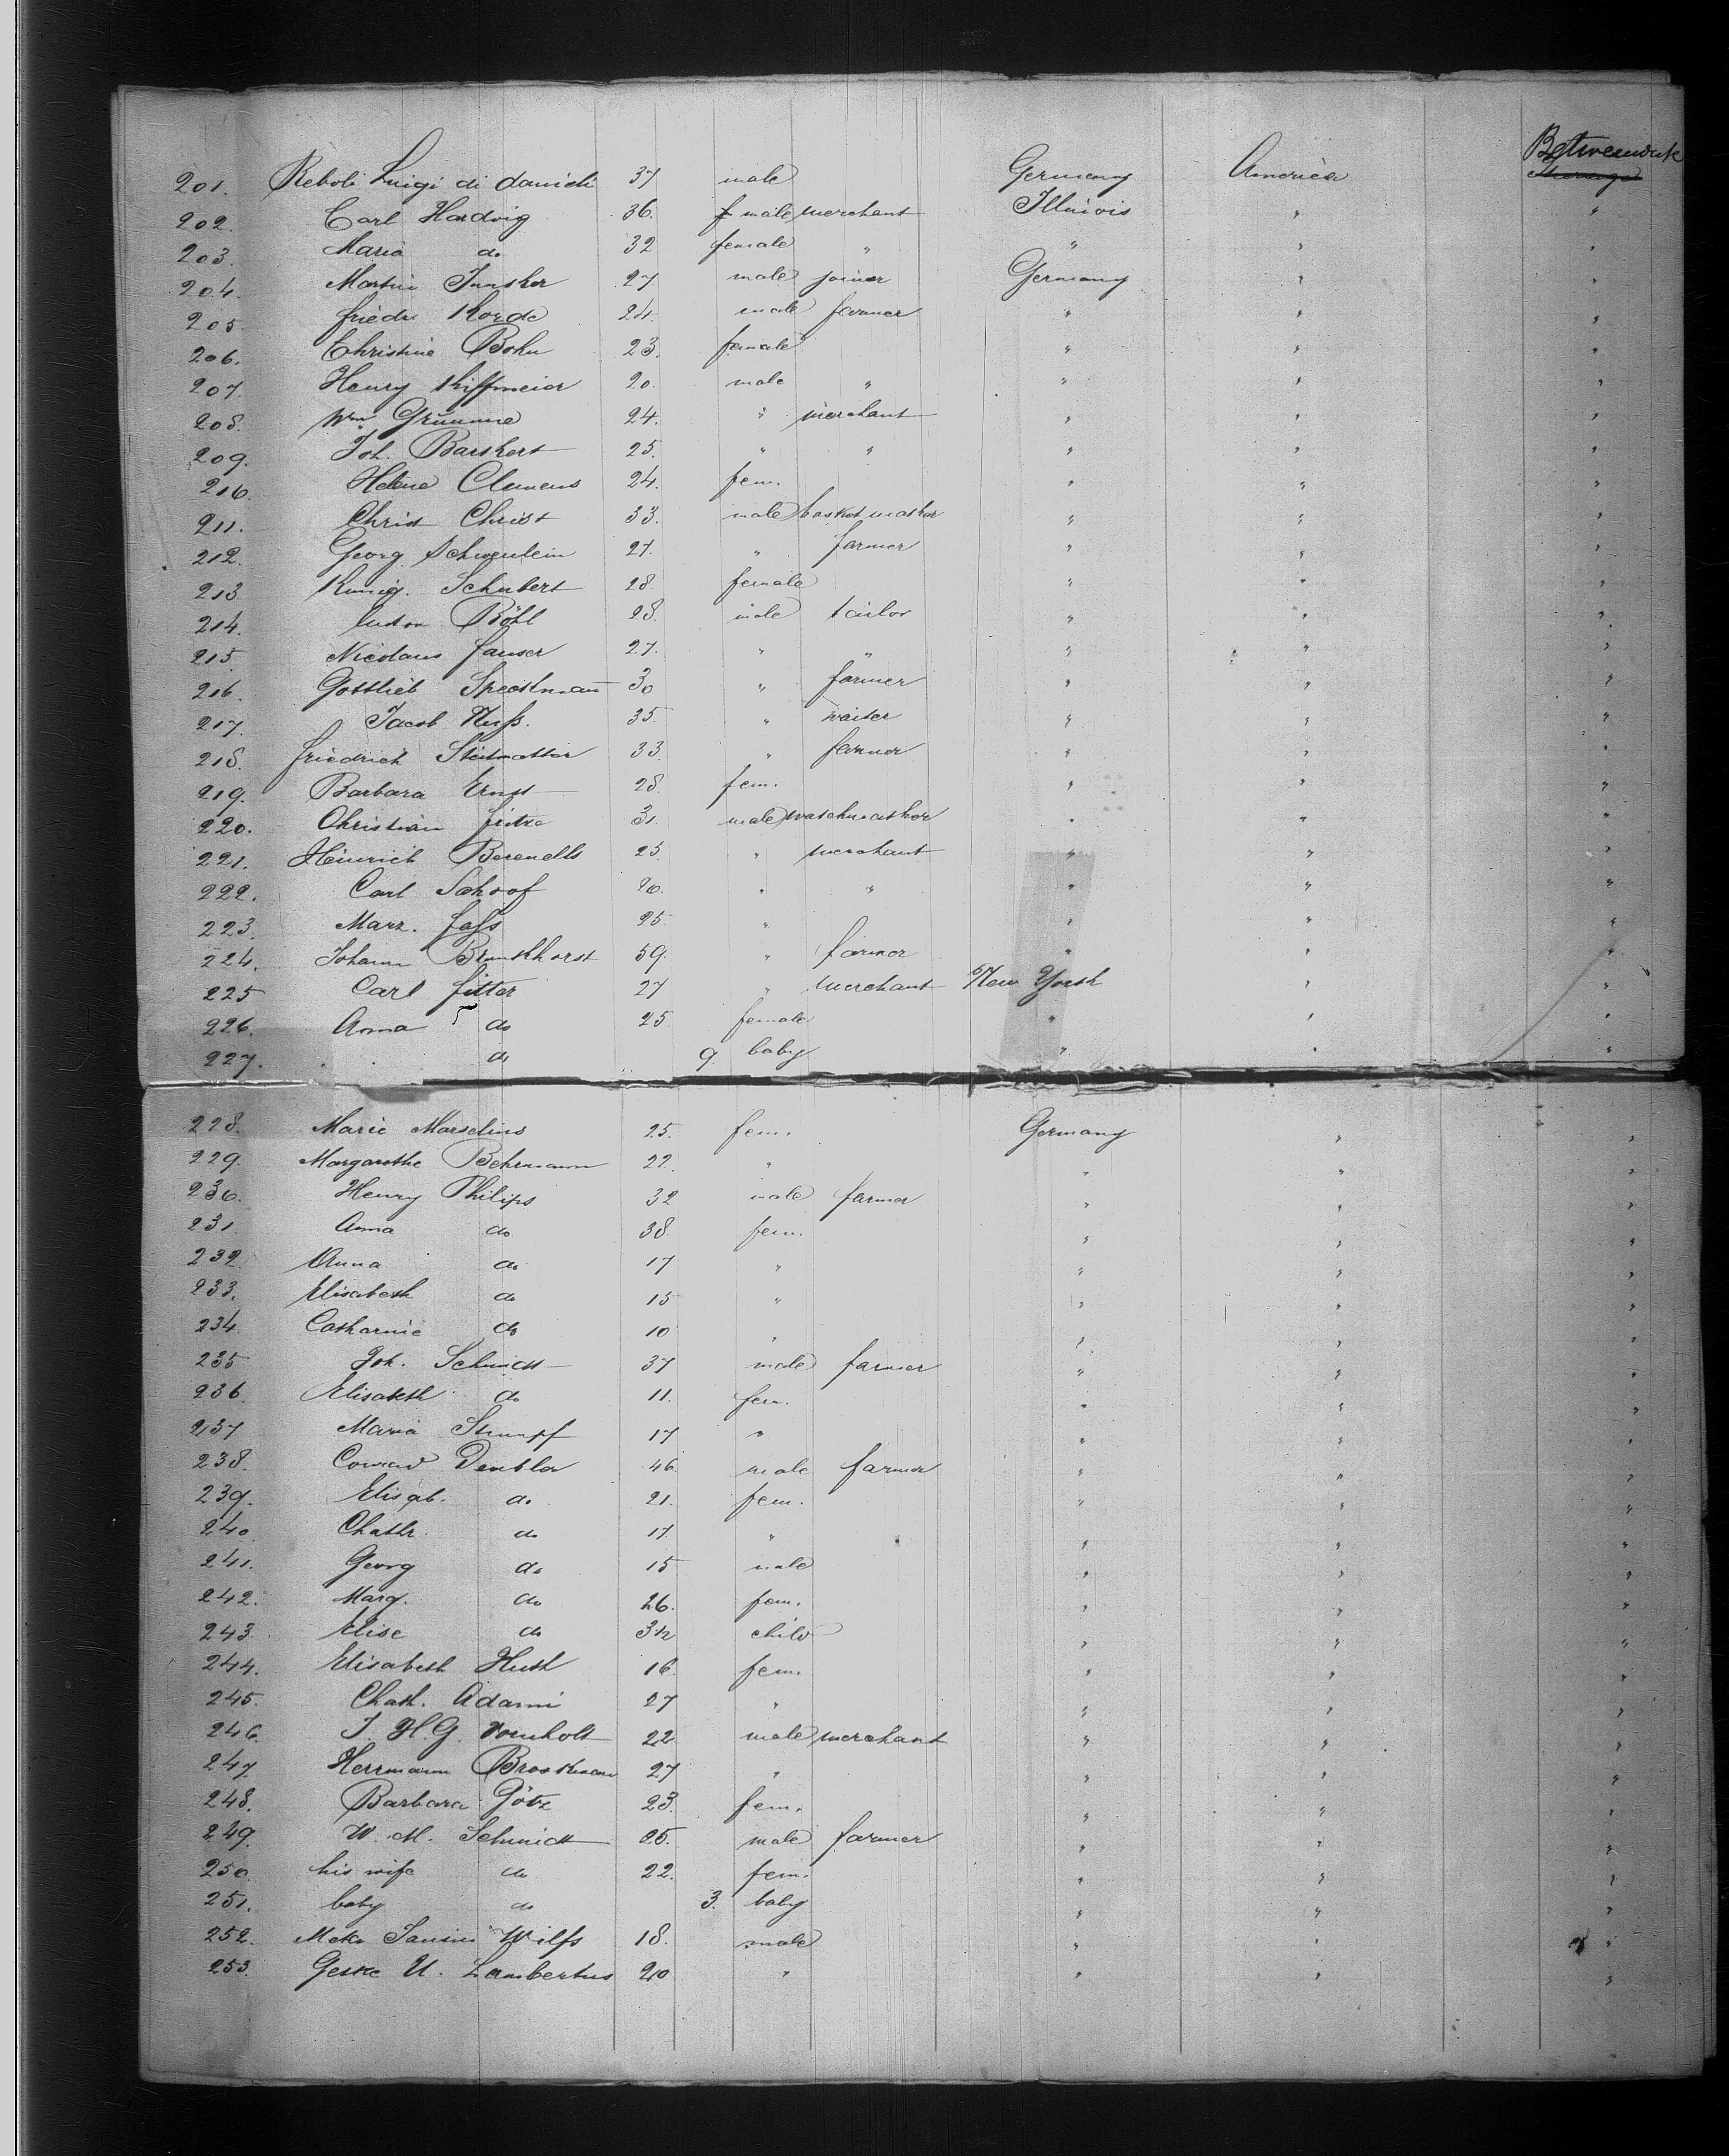 Betweendeck
201. Reboli Luigi di daniele 37 male Germany America
202. Carl Hardvig 36. male merchant Illinois "
203. Maria do 32 female " " " "
204. Martin Junker 27 male joiner Germany " "
205. friedr Korde 24. male farmer " " "
206. Christine Bohn 23. female " " "
207. Henry Kiffmeier 20. male " " " "
208. Wm. Grumme 24. " merchant " " "
209. Joh. Barkert 25. " " " " "
210. Helene Clemens 24. fem. " " "
211. Christ Christ 33. male basketmaker " " "
212. Georg Schwenlein 27. " farmer " " "
213. Kunig. Schubert 28. female " " "
214. Röhl 28. male tailor " " "
215. Nicolaus fauser 27. " " " " "
216. Gottlieb Speckmann 30 " farmer " " "
217. Jacob Nuss. 35. " waiter " " "
218. friedrich 33. " farmer " " "
219. Barbara Ernst 28. fem. " " "
220. Christian fritze 31. male watchmaker " " "
221. Heinrich Berendts 25. " merchant " " "
222. Carl Schoof 20. " " " " "
223. Marx. fass 25. " " " "
224. Johann Brunkhorst 59. " farmer " " "
225 Carl fitter 27 " merchant New York " "
226. Anna do 25. female " " "
227. do 9 baby " " "
228. Marie Marselius 25. fem. Germany " "
229. Margarethe Behrmann 22. " " " "
230. Henry Philips 32 male farmer " " "
231. Anna do 38 fem. " " "
232. Anna do 17 " " " "
233. Elisabeth do 15 " " " "
234. Catharine do 10 " " " "
235 Joh. Schmidt 37 male farmer " " "
236 Elisabeth do 11. fem. " " "
237 Maria Stumpf 17 " " " "
238. Conrad Deubler 46. male farmer " " "
239. Elisab. do. 21. fem. " " "
240. Chath. do 17. " " " "
241. Georg do 15 male " " "
242. Marg. do 26. fem. " " "
243. Elise do 3½ child " " "
244. Elisabeth Huth 16. fem. " " "
245. Chath. Adami 27 " " " "
246. J. H. G. Vornholt 22 male merchant " " "
247. Herrmann Brockmann 27 " " " "
248. Barbara Götz 23. fem. " " "
249. W. M. Schmidt 25. male farmer " " "
250. his wife do 22. fem. " " "
251. baby do 3. baby " " "
252. Meke Jansen Wilfs 18. male " " "
253. Geske U. Lambertus 20 " " " "